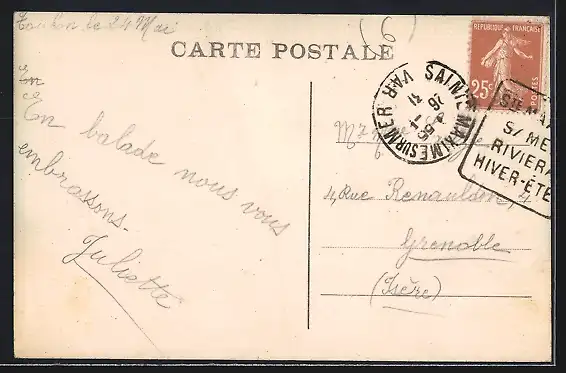 Toulon le 24 Mai
(6)
CARTE POSTALE
RÉPUBLIQUE FRANÇAISE
25c
POSTES
SAINTE MAXIME SUR MER VAR
STE MA
S/ ME
RIVIERA
HIVER-ÉTÉ
En
En balade nous vous
embrassons.
Juliette
4, Rue Renauldon, 4
Grenoble
(Isère)